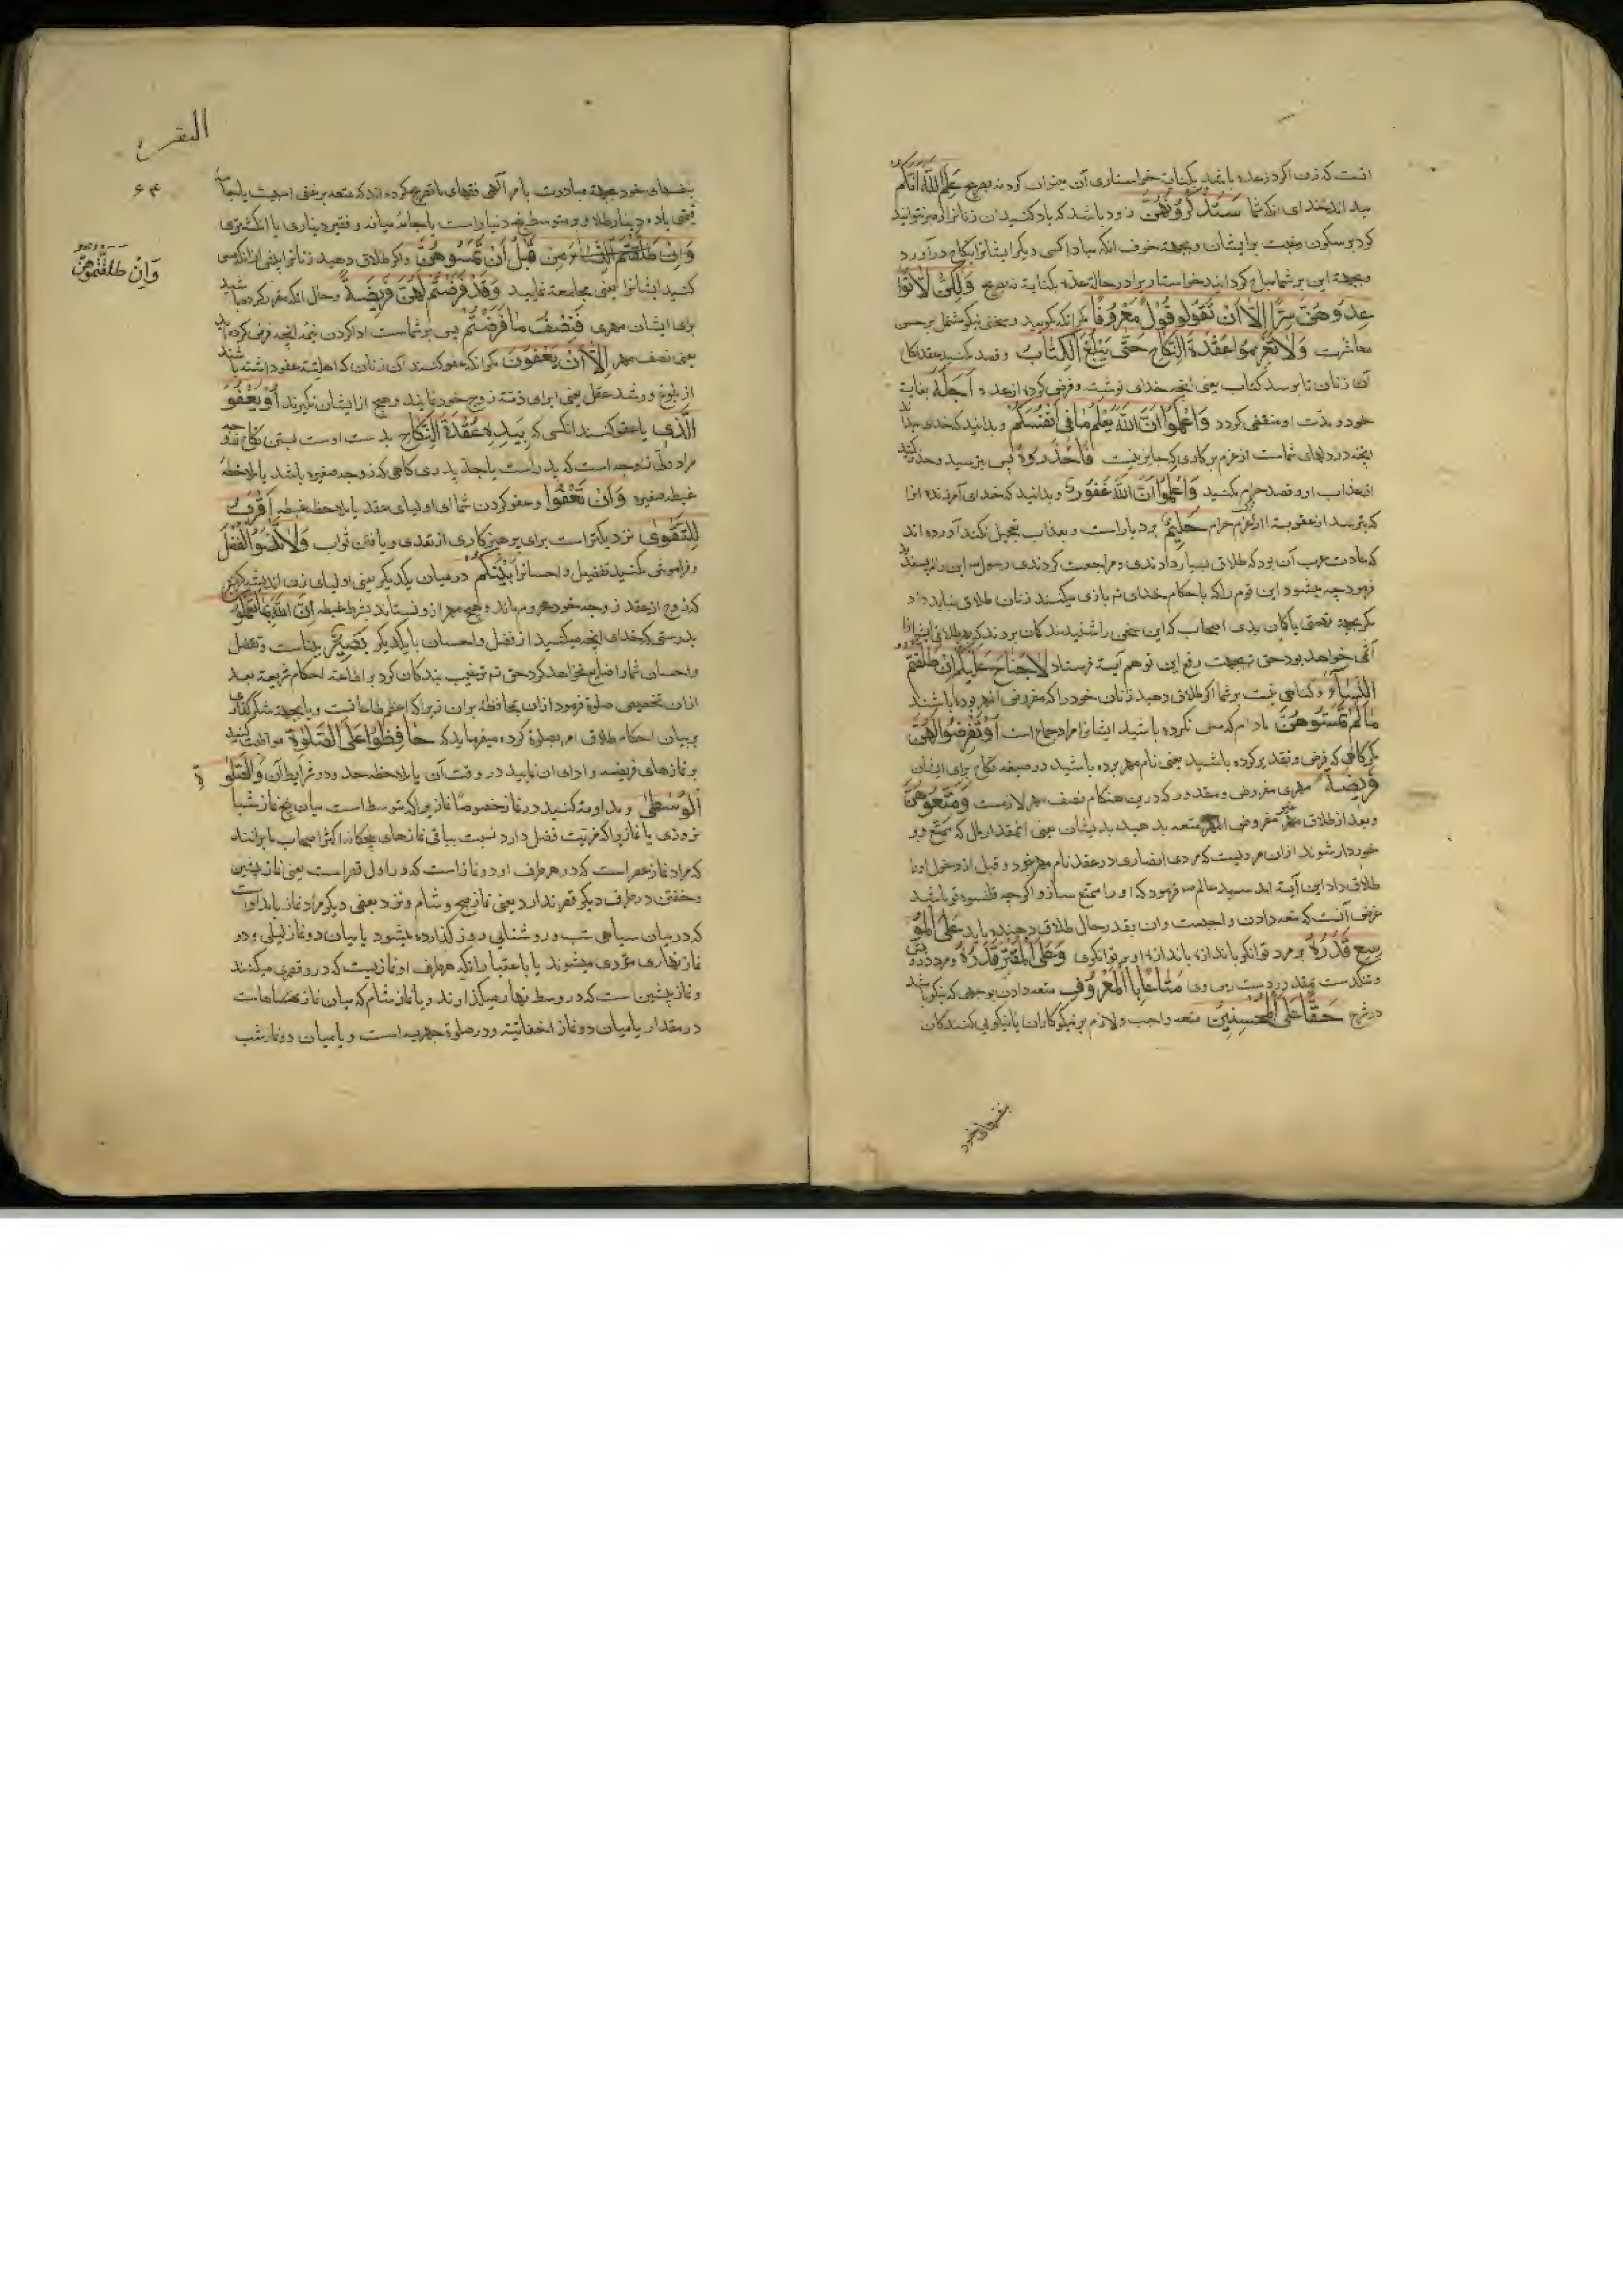 انست که زن اگر در عده باشد بکنایت خواستاری آن میتوان کرد نه بصریح عَلِمَ اللّٰهُ اَنَّکُم
میداند خدای انکه شما سَتَذْکُرُونَهُنَّ زود باشد که یاد کنید ان زنانرا و صبر نتوانید
کرد بر سکون رغبت بر ایشان و بجهة خوف انکه مبادا کسی دیگر ایشانرا بنکاح درآورد
خواستار برا در حالة عده بکنایة نه بصریح وَلٰکِنْ لَا تُوَا
عِدُوهُنَّ سِرًّا اِلَّا اَنْ تَقُولُو قَوْلًا مَعْرُوفًا مکر انکه بکویید سخنی نیکو مشتمل بر حسن
معاشرت وَلَا تَعْزِمُوا عُقْدَةَ النِّکَاحِ حَتَّی یَبْلُغَ الْکِتَابُ و قصد مکنید عقد نکاح
آن زنان تا برسد کتاب یعنی انچه خدای نوشته و فرض کرده از عده اَجَلَهُ بغایت
خود و مدت او منقضی کردد وَاعْلَمُوا اَنَّ اللّٰهَ یَعْلَمُ مَا فِی اَنْفُسِکُمْ و بدانید که خدای میداند
انچه در دلهای شماست از عزم بر کاری که جایز نیست فَاحْذَرُوهُ پس بترسید و حذر کنید
از عذاب او و قصد حرام مکنید وَاعْلَمُوا اَنَّ اللّٰهَ غَفُورٌ و بدانید که خدای آمرزنده انرا
که بترسد از عقوبة او از عزم حرام حَلِیمٌ بردبار است و بعذاب تعجیل نکند آورده اند
که عادت عرب آن بود که طلاق بسیار دادندی و مراجعت کردندی رسول این را نپسندید
فرمود چه میشود این قوم را که باحکام خدای بازی میکنند زنان طلاق نباید داد
مکر بجهة تهمتی یا کمان بدی اصحاب که این سخن را شنیدند کمان بردند که در طلاق
اثمی خواهد بود حق بجهت رفع این توهم آیة فرستاد لَا جُنَاحَ عَلَیْکُمْ اِنْ طَلَّقْتُمُ
النِّسَآءَ و کناهی نیست بر شما اگر طلاق دهید زنان خود را که
مَا لَمْ تَمَسُّوهُنَّ مادام که مس نکرده باشید ایشانرا مراد جماع است اَوْ تَفْرِضُوا لَهُنَّ
که فرض و تقدیر کرده باشید یعنی نام مهر برده باشید در صیغه نکاح برای ایشان
فَرِیضَةً مهری مفروض و مقدور که درین هنکام نصف مهر لازمست وَمَتِّعُوهُنَّ
و بعد از طلاق غیر مفروض المهر متعه بدهید بدیشان یعنی انمقدار مال که تمتع و بر
خوردار شوند ازان مرویست که مردی انصاری در عقد نام مهر نبرد و قبل از دخول او را
طلاق داد این آیة امد سید عالم فرمود که او را متمتع ساز و اکرچه قلنسوه تو باشد
غرض آنست که متعه دادن واجبست وان بقدر حال طلاق دهنده باید عَلَی الْمُوْ
سِعِ قَدَرُهُ بر مرد توانکر باندازه او بر توانکری وَعَلَی الْمُقْتِرِ قَدَرُهُ و بر مرد درویش
و تنکدست مَتَاعًا بِالْمَعْرُوفِ متعه دادن بوجهی که نیکو باشد
در شرع حَقًّا عَلَی الْمُحْسِنِینَ متعه واجب و لازم بر نیکوکاران یا نیکویی کنندکان
بنفسهای خود
البقره
۶۴
وَاِنْ طَلَّقْتُمُوهُنَّ
بنفسهای خود بجهة مبادرت بامر الهی فقهای ما تصریح کرده اند که متعه بر غنی
قیمتی یا ده دینار طلا و بر متوسط پنج دینار است یا جامهٔ میانه و فقیر دیناری یا انکشتری
وَاِنْ طَلَّقْتُمُ النِّسَاءَ مِنْ قَبْلِ اَنْ تَمَسُّوهُنَّ و اکر طلاق دهید زنانرا پیش از انکه مس
کنید ایشانرا یعنی مجامعة نمایید وَقَدْ فَرَضْتُمْ لَهُنَّ فَرِیضَةً و حال انکه نام برده باشید
برای ایشان مهری فَنِصْفُ مَا فَرَضْتُمْ پس بر شماست ادا کردن نیمه انچه فرض کرده اید
یعنی نصف مهر اِلَّا اَنْ یَعْفُونَ مکر انکه عفو کنند آن زنان که اهلیت عفو داشته باشند
از بلوغ و رشد عقل یعنی ابرای ذمه زوج خود نمایند و هیچ از ایشان نکیرند اَوْ یَعْفُوَ
الَّذِی یا عفو کند انکسی که بِیَدِهِ عُقْدَةُ النِّکَاحِ بدست اوست بستن نکاح
مراد ولی زوجه است که پدر است یا جد پدری کاهی که زوجه صغیره باشد با ملاحظه
غبطه صغیره وَاَنْ تَعْفُوا و عفو کردن شما ای اولیای عقد با ملاحظه غبطه اَقْرَبُ
لِلتَّقْوٰی نزدیکتر است برای پرهیزکاری از تعدی و یا فتن ثواب وَلَا تَنْسَوُا الْفَضْلَ
و فراموش مکنید تفضیل و احسانرا بَیْنَکُمْ در میان یکدیکر یعنی اولیای زن
که زوج از عقد زوجه خود محروم ماند و هیچ مهر ازو نستاند بشرط غبطه اِنَّ اللّٰهَ بِمَا تَعْمَلُونَ
بدرستی که خدای انچه میکنید از فضل و احسان با یکدیکر بَصِیرٌ بیناست و تفضل
و احسان شما را ضایع نخواهد کرد حق ترغیب بندکان کرد بر اطاعة احکام شریعة بعد
ازان تخصیص صلوة فرمود ازان محافظه بران زیرا که اعظم طاعاتست و یا بجهة شکرکذاری
بر بیان احکام طلاق امر بصلوة کرده میفرماید که حَافِظُوا عَلَی الصَّلَوٰةِ مواظبت کنید
بر نمازهای فریضه و ادای ان نمایید در وقت آن با ملاحظه حدود و شرایط آن وَالصَّلٰو
ةِ
الْوُسْطٰی و مداومت کنید در نماز خصوصًا نمازیرا که متوسط است میان پنج نماز شبا
نروزی یا نمازیرا که مزیت فضل دارد نسبت بباقی نمازهای پنجکانه اکثر اصحاب ما برانند
که مراد نماز عصر است که در هر طرف او دو نماز است که در اول قصر است یعنی نماز پیشین
و خفتن در طرف دیکر قصر ندارد یعنی نماز صبح و شام و نزد بعضی دیکر مراد نماز بامداد است
که در میان سیاهی شب و روشنایی روز کذارده میشود یا میان دو نماز لیلی و دو
نماز نهاری مؤدی میشوند یا باعتبار انکه هر طرف او نمازیست که در و قصر میکنند
و نماز پیشین است که در وسط نهار میکذارند و یا نماز شام که میان نماز
در مقدار یا میان دو نماز اخفاتیه و دو صلوة جهریه است و یا میان دو نماز شب